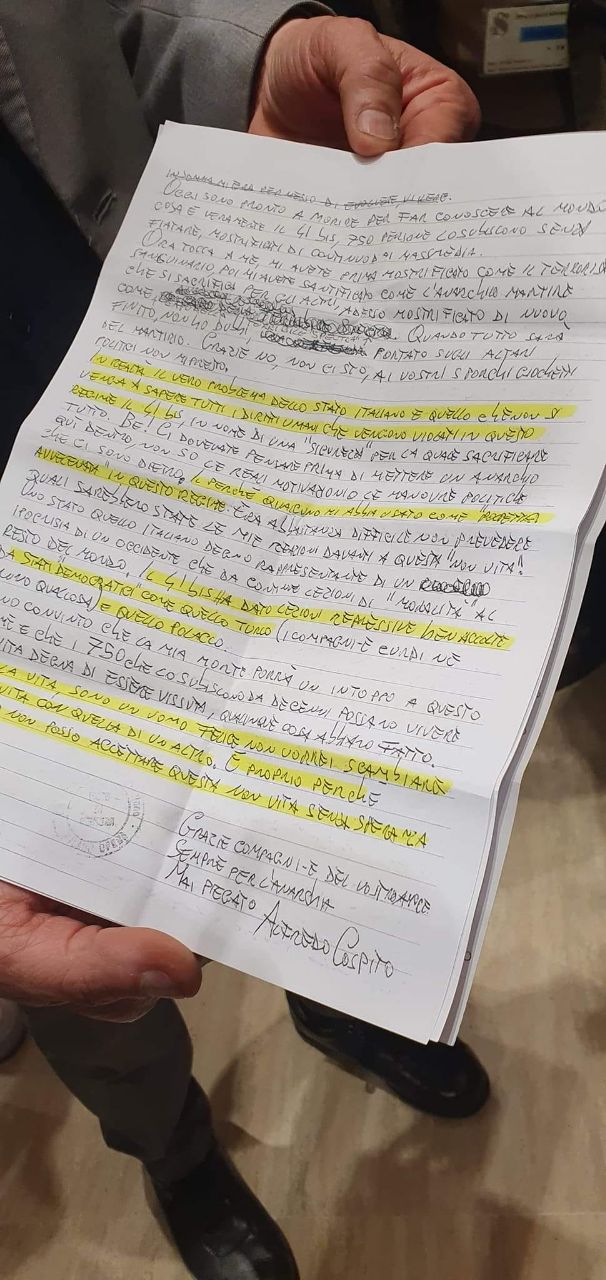 OGGI SONO PRONTO A MORIRE PER FAR CONOSCERE AL MONDO
COSA È VERAMENTE IL 41 BIS, 750 PERSONE LO SUBISCONO SENZA
FIATARE, MOSTRIFICATI DI CONTINUO DAI MASSMEDIA.
ORA TOCCA A ME, MI AVETE PRIMA MOSTRIFICATO COME IL TERRORISTA
SANGUINARIO POI MI AVETE SANTIFICATO COME L'ANARCHICO MARTIRE
CHE SI SACRIFICA PER GLI ALTRI, ADESSO MOSTRIFICATO DI NUOVO
COME QUANDO TUTTO SARÀ
FINITO, NON HO DUBBI, PORTATO SUGLI ALTARI
DEL MARTIRIO. GRAZIE NO, NON CI STO, AI VOSTRI SPORCHI GIOCHETTI
POLITICI NON MI PRESTO.
IN REALTÀ IL VERO PROBLEMA DELLO STATO ITALIANO È QUELLO CHE NON SI
VENGA A SAPERE TUTTI I DIRITTI UMANI CHE VENGONO VIOLATI IN QUESTO
REGIME IL 41 BIS IN NOME DI UNA "SICUREZZA" PER LA QUALE SACRIFICARE
TUTTO. BE! CI DOVEVATE PENSARE PRIMA DI METTERE UN ANARCHICO
QUI DENTRO, NON SO LE REALI MOTIVAZIONI O LE MANOVRE POLITICHE
CHE CI SONO DIETRO. IL PERCHÉ QUALCUNO MI ABBIA USATO COME "POLPETTA
AVVELENATA" IN QUESTO REGIME. ERA ABBASTANZA DIFFICILE NON PREVEDERE
QUALI SAREBBERO STATE LE MIE REAZIONI DAVANTI A QUESTA "NON VITA".
UNO STATO QUELLO ITALIANO DEGNO RAPPRESENTANTE DI UN
IPOCRISIA DI UN OCCIDENTE CHE DA CONTINUE LEZIONI DI "MORALITÀ" AL
RESTO DEL MONDO. IL 41 BIS HA DATO LEZIONI REPRESSIVE BEN ACCOLTE
DA STATI DEMOCRATICI COME QUELLO TURCO (I COMPAGNI-E CURDI NE
QUALCOSA) E QUELLO POLACCO.
CONVINTO CHE LA MIA MORTE PORRÀ UN INTOPPO A QUESTO
E CHE I 750 CHE LO SUBISCONO DA DECENNI POSSANO VIVERE
VITA DEGNA DI ESSERE VISSUTA, QUALUNQUE COSA ABBIANO FATTO.
LA VITA, SONO UN UOMO FELICE NON VORREI SCAMBIARE
VITA CON QUELLA DI UN ALTRO. È PROPRIO PERCHÉ
NON POSSO ACCETTARE QUESTA NON VITA SENZA SPERANZA
GRAZIE COMPAGNI-E DEL VOSTRO AMORE
SEMPRE PER L'ANARCHIA
MAI PIEGATO ALFREDO COSPITO